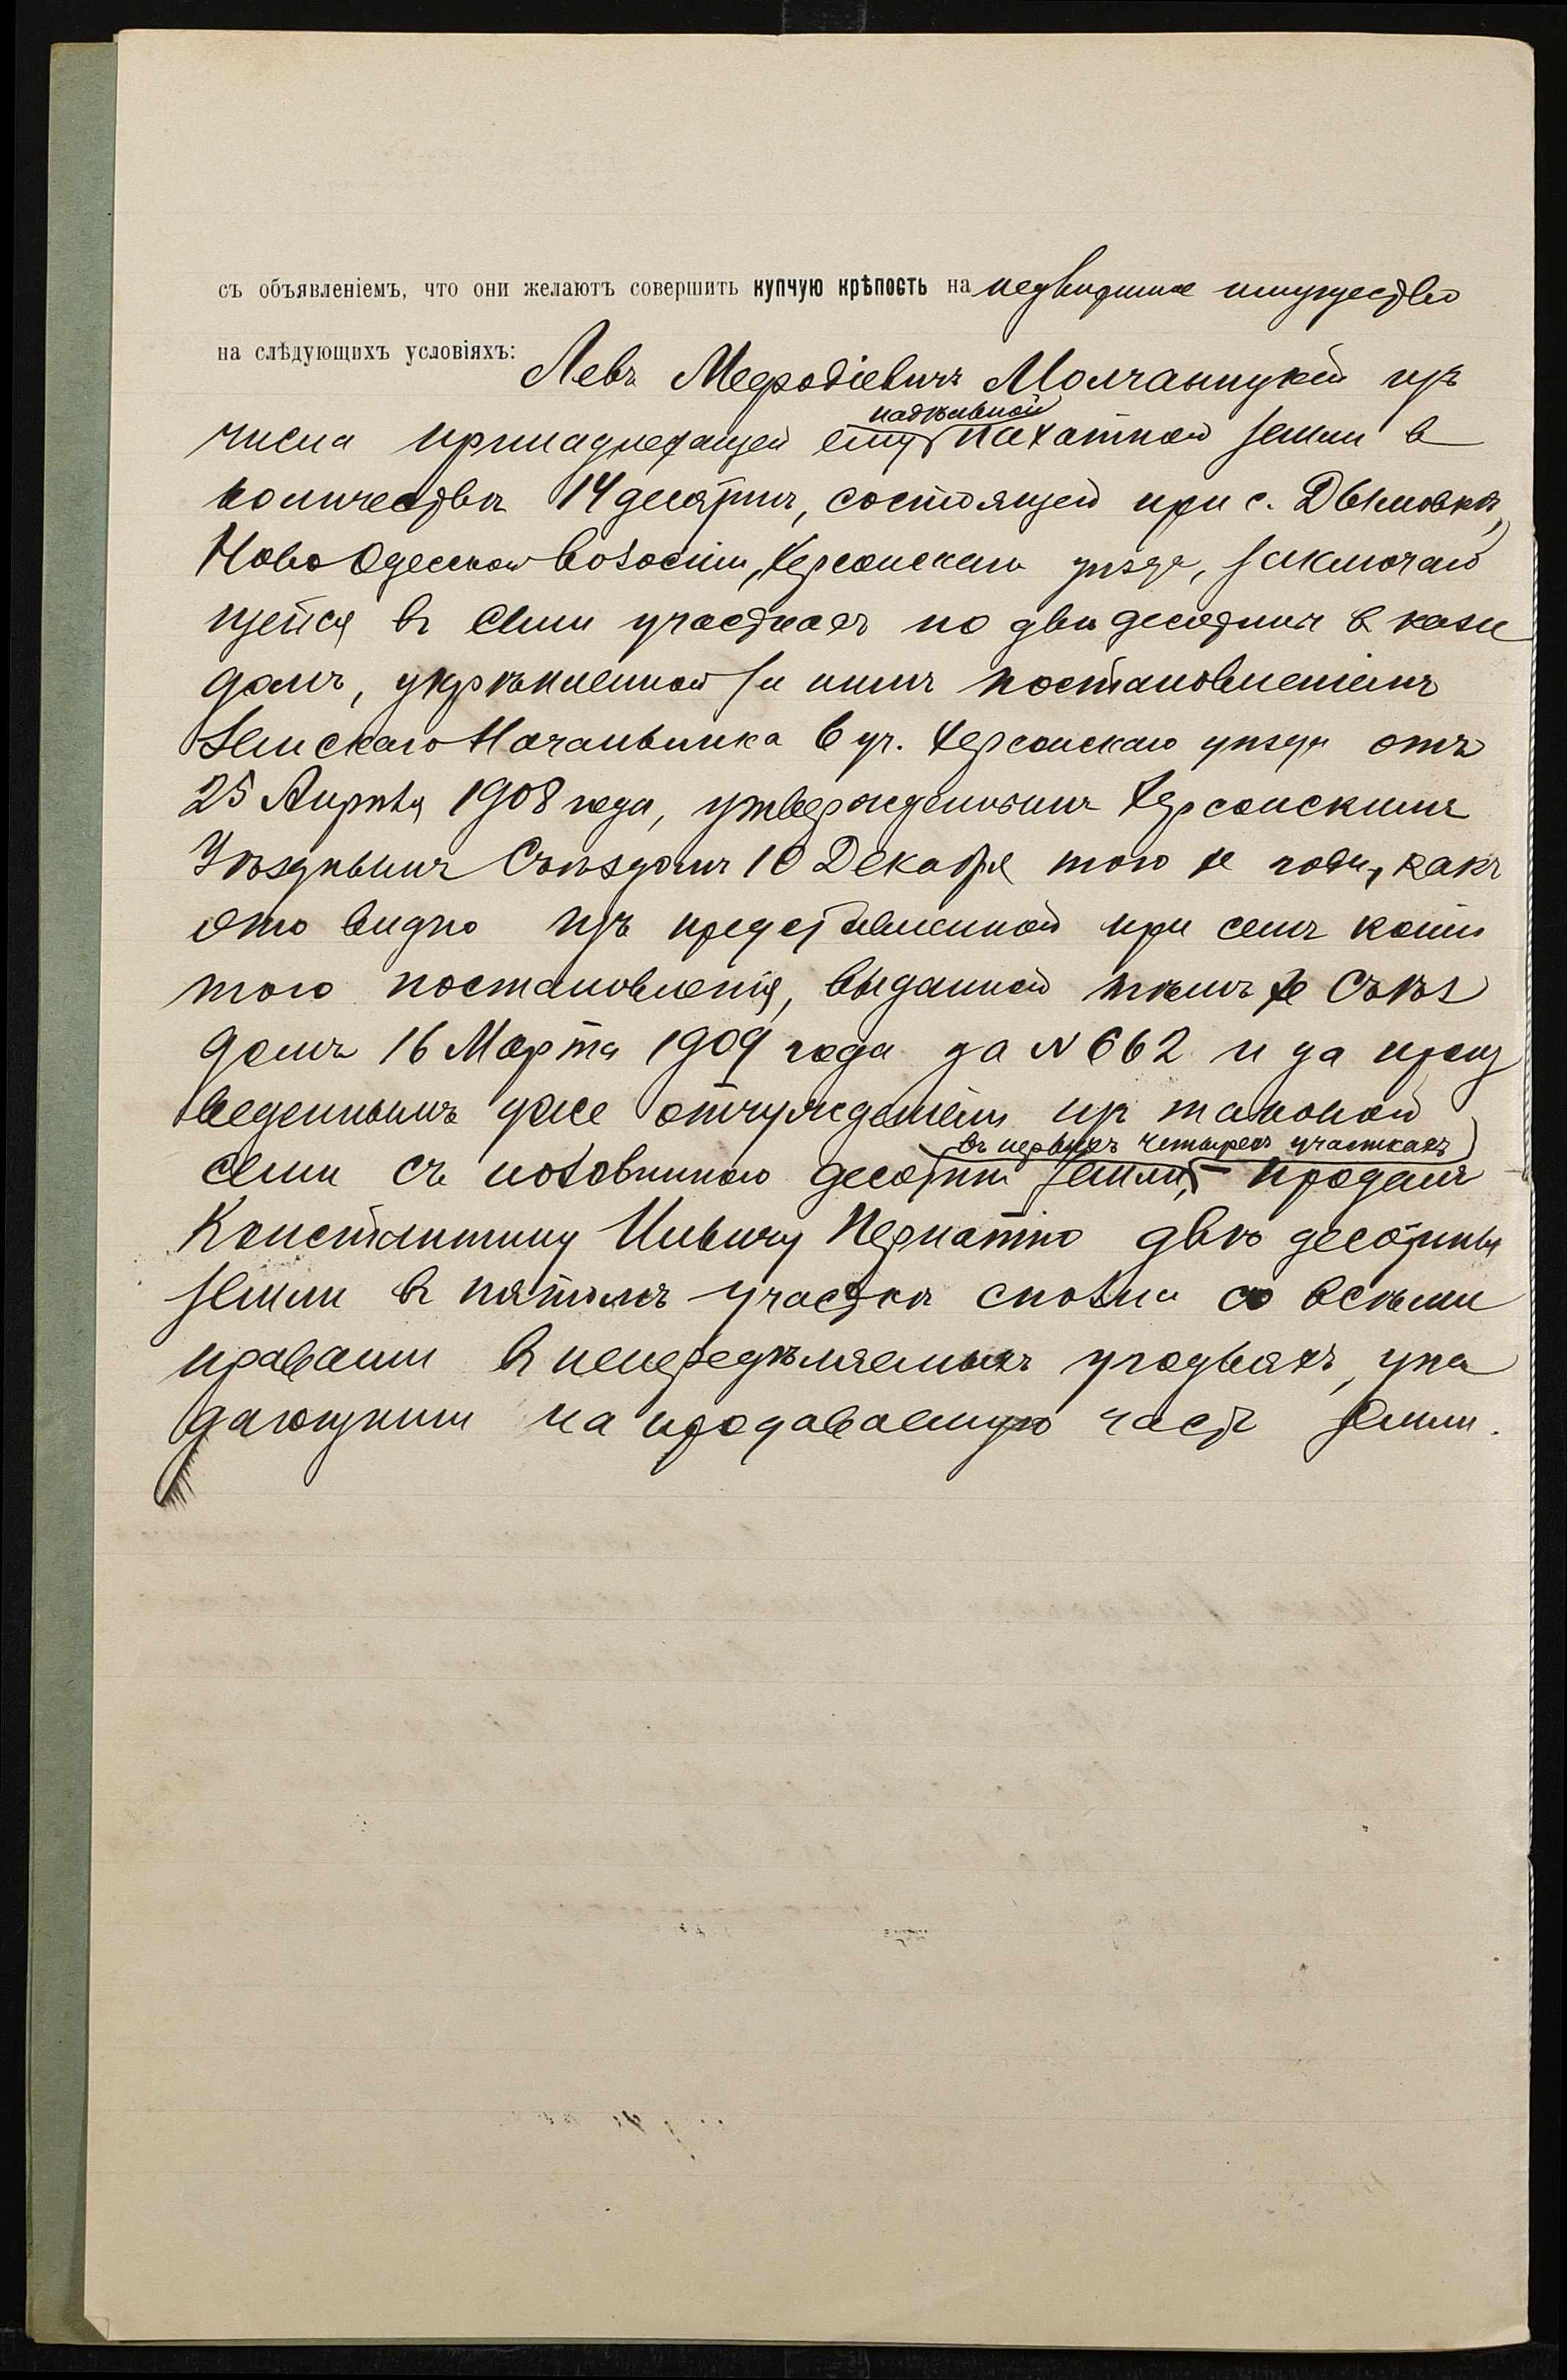 съ объявленіемъ, что они желаютъ совершить купчую крѣпость на недвижимое имущество
на слѣдующихъ условіяхъ: Левъ Мефодіевичъ Молчаницкій изъ
надѣльной
числа принадлежащей ему пахатной земли въ
количествѣ 14 десятинъ, состоящей при с. Дымовкѣ,
Ново Одесской волости, Херсонскаго уѣзда, заключаю
щейся въ семи участкахъ по двѣ десятины въ каж
домъ, укрѣпленной за нимъ постановленіемъ
Земскаго Начальника 6 уч. Херсонскаго уѣзда отъ
25 Апрѣля 1908 года, утвержденнымъ Херсонскимъ
Уѣзднымъ Съѣздомъ 10 Декабря того же года, какъ
это видно изъ представленной при семъ копіи
того постановленія, выданной тѣмъ же Съѣз
домъ 16 Марта 1909 года за № 662 и за произ
веденнымъ уже отчужденіемъ изъ таковой
въ первыхъ четырехъ участкахъ
семи съ половиною десятинъ земли, продалъ
Константину Ильичу Пернатію двѣ десятины
земли въ пятомъ участкѣ сполна со всѣми
правами въ непередѣляемыхъ угодьяхъ, упа
дающими на продаваемую часть земли.